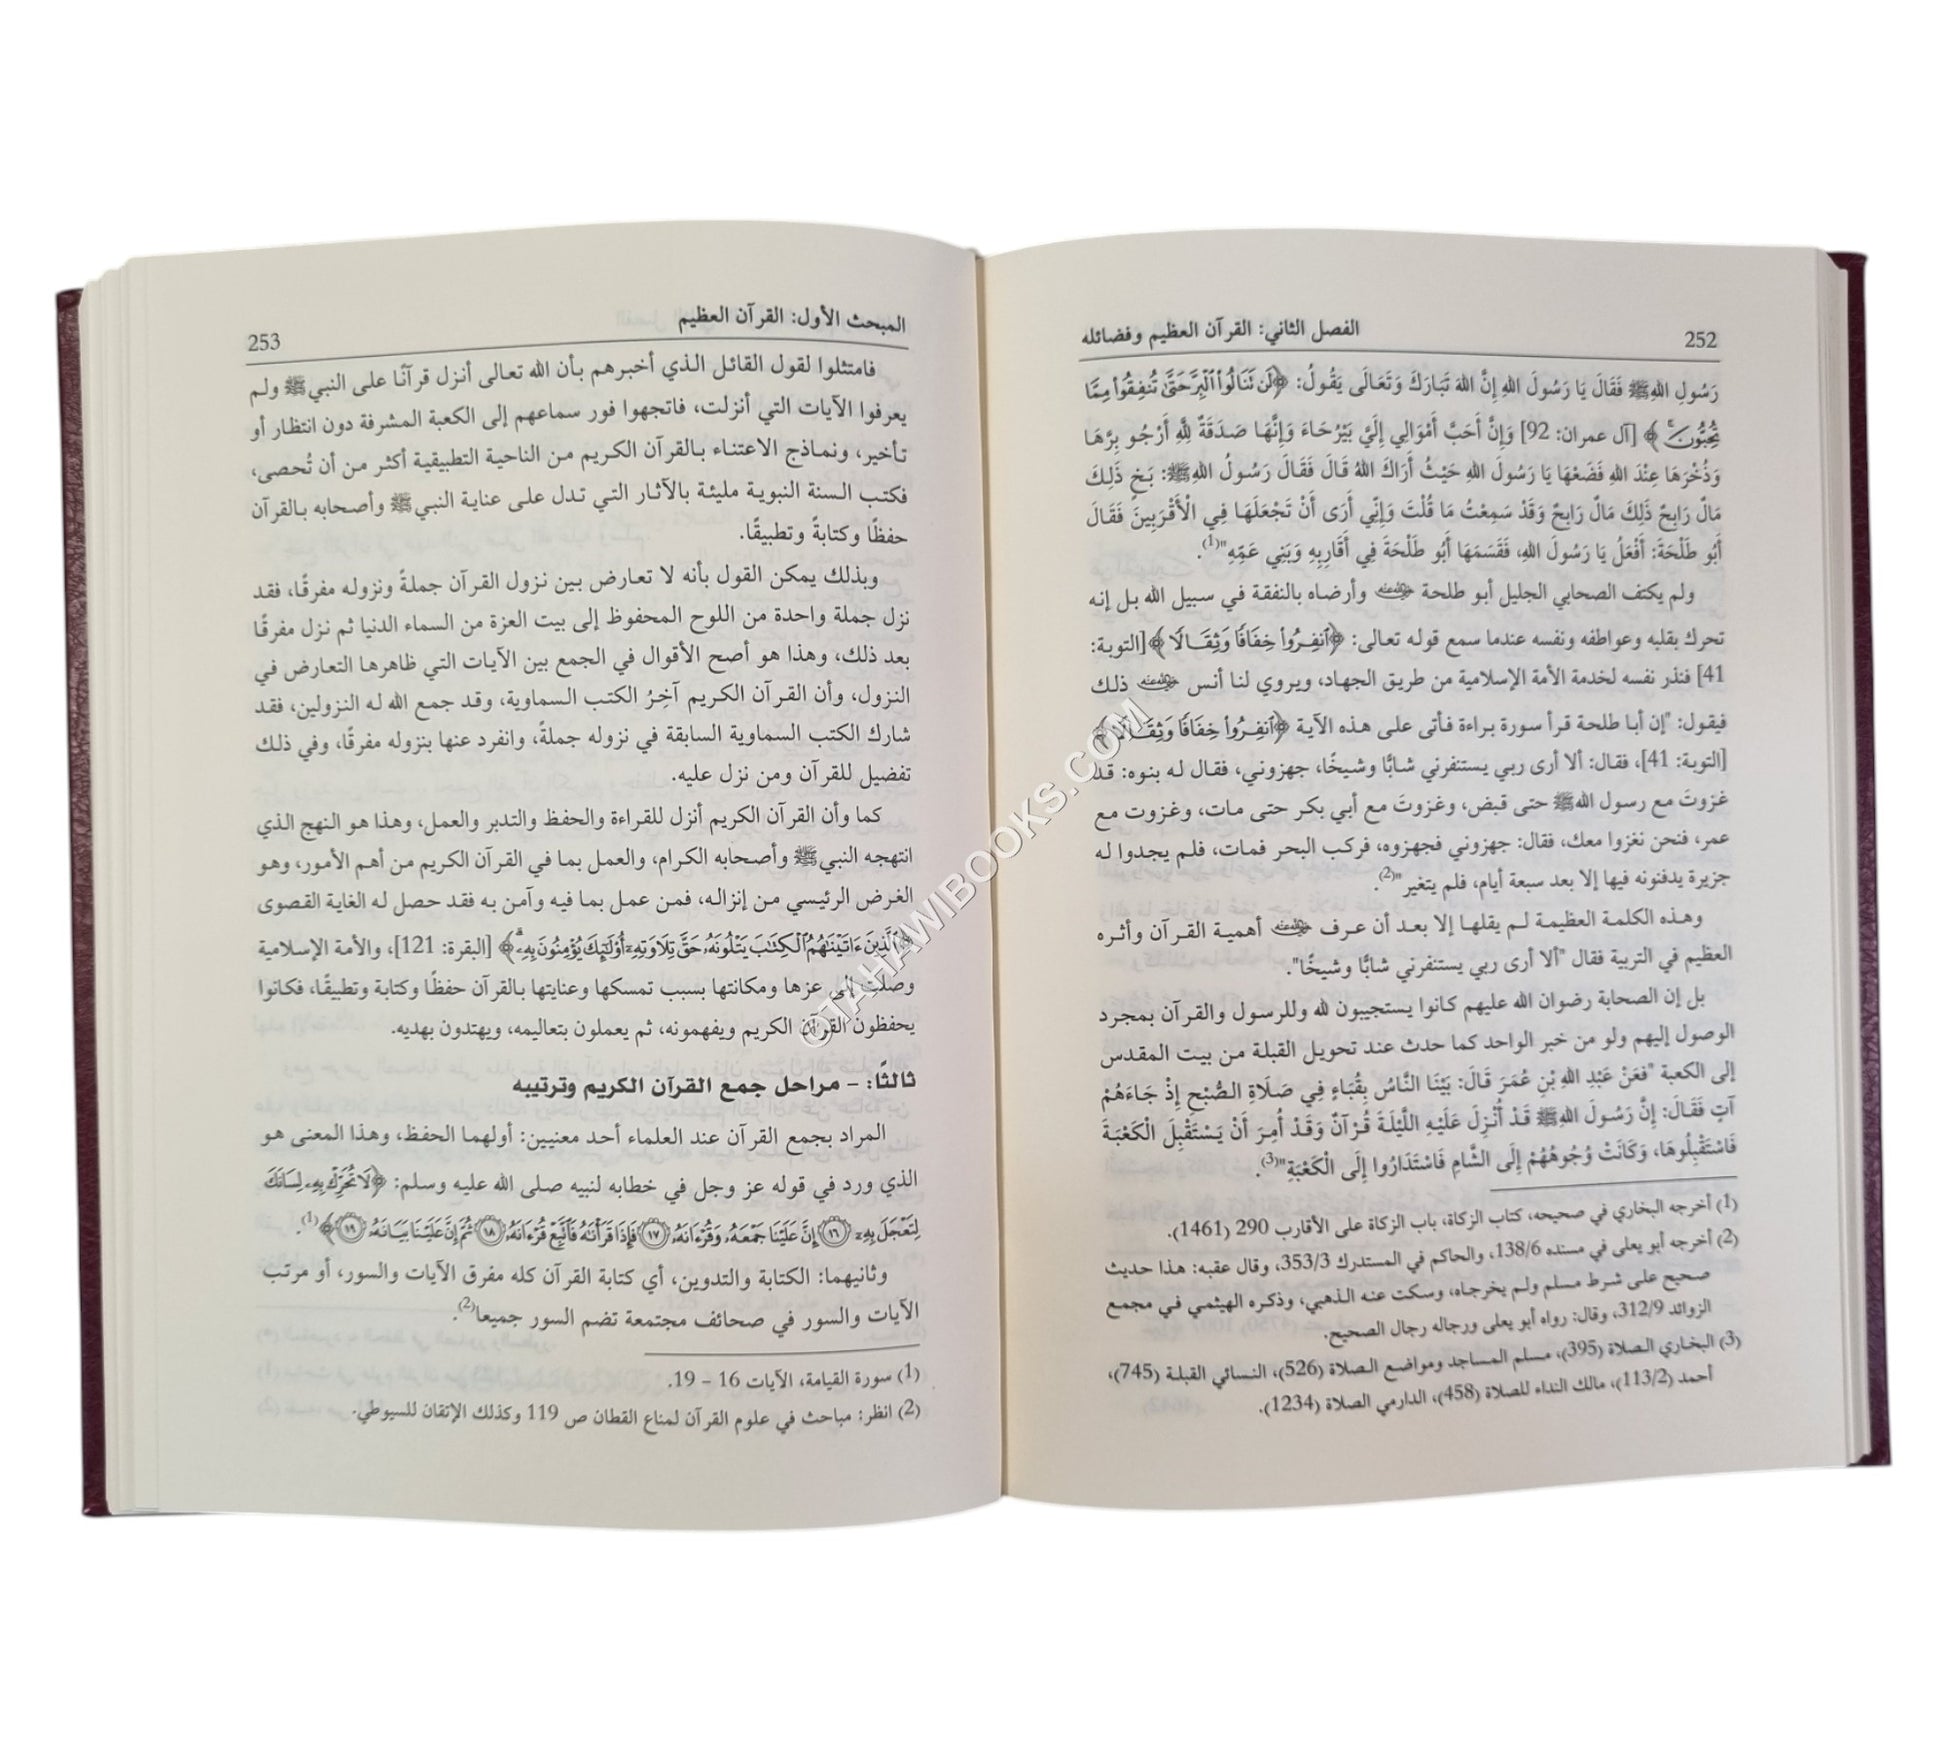 252
الفصل الثاني: القرآن العظيم وفضائله
رَسُولِ اللهِ ﷺ فَقَالَ يَا رَسُولَ اللهِ إِنَّ اللهَ تَبَارَكَ وَتَعَالَى يَقُولُ: ﴿لَن تَنَالُواْ ٱلۡبِرَّ حَتَّىٰ تُنفِقُواْ مِمَّا
تُحِبُّونَۚ﴾ [آل عمران: 92] وَإِنَّ أَحَبَّ أَمْوَالِي إِلَيَّ بَيْرُحَاءَ وَإِنَّهَا صَدَقَةٌ لِلَّهِ أَرْجُو بِرَّهَا
وَذُخْرَهَا عِنْدَ اللهِ فَضَعْهَا يَا رَسُولَ اللهِ حَيْثُ أَرَاكَ اللهُ قَالَ فَقَالَ رَسُولُ اللهِ ﷺ: بَخٍ ذَلِكَ
مَالٌ رَابِحٌ ذَلِكَ مَالٌ رَابِحٌ وَقَدْ سَمِعْتُ مَا قُلْتَ وَإِنِّي أَرَى أَنْ تَجْعَلَهَا فِي الْأَقْرَبِينَ فَقَالَ
أَبُو طَلْحَةَ: أَفْعَلُ يَا رَسُولَ اللهِ، فَقَسَمَهَا أَبُو طَلْحَةَ فِي أَقَارِبِهِ وَبَنِي عَمِّهِ"(1).
ولم يكتف الصحابي الجليل أبو طلحة رضي الله عنه وأرضاه بالنفقة في سبيل الله بل إنه
تحرك بقلبه وعواطفه ونفسه عندما سمع قوله تعالى: ﴿ٱنفِرُواْ خِفَافٗا وَثِقَالٗا﴾ [التوبة:
41] فنذر نفسه لخدمة الأمة الإسلامية من طريق الجهاد، ويروي لنا أنس رضي الله عنه ذلك
فيقول: "إن أبا طلحة قرأ سورة براءة فأتى على هذه الآية ﴿ٱنفِرُواْ خِفَافٗا وَثِقَالٗا﴾
[التوبة: 41]، فقال: ألا أرى ربي يستنفرني شابًّا وشيخًا، جهزوني، فقال له بنوه: قد
غزوتَ مع رسول الله ﷺ حتى قبض، وغزوتَ مع أبي بكر حتى مات، وغزوت مع
عمر، فنحن نغزوا معك، فقال: جهزوني فجهزوه، فركب البحر فمات، فلم يجدوا له
جزيرة يدفنونه فيها إلا بعد سبعة أيام، فلم يتغير"(2).
وهذه الكلمة العظيمة لم يقلها إلا بعد أن عرف رضي الله عنه أهمية القرآن وأثره
العظيم في التربية فقال "ألا أرى ربي يستنفرني شابًّا وشيخًا".
بل إن الصحابة رضوان الله عليهم كانوا يستجيبون لله وللرسول والقرآن بمجرد
الوصول إليهم ولو من خبر الواحد كما حدث عند تحويل القبلة من بيت المقدس
إلى الكعبة "فعَنْ عَبْدِ اللهِ بْنِ عُمَرَ قَالَ: بَيْنَا النَّاسُ بِقُبَاءٍ فِي صَلَاةِ الصُّبْحِ إِذْ جَاءَهُمْ
آتٍ فَقَالَ: إِنَّ رَسُولَ اللهِ ﷺ قَدْ أُنْزِلَ عَلَيْهِ اللَّيْلَةَ قُرْآنٌ وَقَدْ أُمِرَ أَنْ يَسْتَقْبِلَ الْكَعْبَةَ
فَاسْتَقْبِلُوهَا، وَكَانَتْ وُجُوهُهُمْ إِلَى الشَّامِ فَاسْتَدَارُوا إِلَى الْكَعْبَةِ"(3).
(1) أخرجه البخاري في صحيحه، كتاب الزكاة، باب الزكاة على الأقارب 290 (1461).
(2) أخرجه أبو يعلى في مسنده 138/6، والحاكم في المستدرك 353/3، وقال عقبه: هذا حديث
صحيح على شرط مسلم ولم يخرجاه، وسكت عنه الذهبي، وذكره الهيثمي في مجمع
الزوائد 312/9، وقال: رواه أبو يعلى ورجاله رجال الصحيح.
(3) البخاري الصلاة (395)، مسلم المساجد ومواضع الصلاة (526)، النسائي القبلة (745)،
أحمد (113/2)، مالك النداء للصلاة (458)، الدارمي الصلاة (1234).
المبحث الأول: القرآن العظيم
253
فامتثلوا لقول القائل الذي أخبرهم بأن الله تعالى أنزل قرآنًا على النبي ﷺ ولم
يعرفوا الآيات التي أنزلت، فاتجهوا فور سماعهم إلى الكعبة المشرفة دون انتظار أو
تأخير، ونماذج الاعتناء بالقرآن الكريم من الناحية التطبيقية أكثر من أن تُحصى،
فكتب السنة النبوية مليئة بالآثار التي تدل على عناية النبي ﷺ وأصحابه بالقرآن
حفظًا وكتابةً وتطبيقًا.
وبذلك يمكن القول بأنه لا تعارض بين نزول القرآن جملةً ونزوله مفرقًا، فقد
نزل جملة واحدة من اللوح المحفوظ إلى بيت العزة من السماء الدنيا ثم نزل مفرقًا
بعد ذلك، وهذا هو أصح الأقوال في الجمع بين الآيات التي ظاهرها التعارض في
النزول، وأن القرآن الكريم آخِرُ الكتب السماوية، وقد جمع الله له النزولين، فقد
شارك الكتب السماوية السابقة في نزوله جملةً، وانفرد عنها بنزوله مفرقًا، وفي ذلك
تفضيل للقرآن ومن نزل عليه.
كما وأن القرآن الكريم أنزل للقراءة والحفظ والتدبر والعمل، وهذا هو النهج الذي
انتهجه النبي ﷺ وأصحابه الكرام، والعمل بما في القرآن الكريم من أهم الأمور، وهو
الغرض الرئيسي من إنزاله، فمن عمل بما فيه وآمن به فقد حصل له الغاية القصوى
﴿ٱلَّذِينَ ءَاتَيۡنَٰهُمُ ٱلۡكِتَٰبَ يَتۡلُونَهُۥ حَقَّ تِلَاوَتِهِۦٓ أُوْلَٰٓئِكَ يُؤۡمِنُونَ بِهِۦۗ﴾ [البقرة: 121]، والأمة الإسلامية
وصلت إلى عزها ومكانتها بسبب تمسكها وعنايتها بالقرآن حفظًا وكتابة وتطبيقًا، فكانوا
يحفظون القرآن الكريم ويفهمونه، ثم يعملون بتعاليمه، ويهتدون بهديه.
ثالثًا: - مراحل جمع القرآن الكريم وترتيبه
المراد بجمع القرآن عند العلماء أحد معنيين: أولهما الحفظ، وهذا المعنى هو
الذي ورد في قوله عز وجل في خطابه لنبيه صلى الله عليه وسلم: ﴿لَا تُحَرِّكۡ بِهِۦ لِسَانَكَ
لِتَعۡجَلَ بِهِۦٓ ١٦ إِنَّ عَلَيۡنَا جَمۡعَهُۥ وَقُرۡءَانَهُۥ ١٧ فَإِذَا قَرَأۡنَٰهُ فَٱتَّبِعۡ قُرۡءَانَهُۥ ١٨ ثُمَّ إِنَّ عَلَيۡنَا بَيَانَهُۥ ١٩﴾(1).
وثانيهما: الكتابة والتدوين، أي كتابة القرآن كله مفرق الآيات والسور، أو مرتب
الآيات والسور في صحائف مجتمعة تضم السور جميعا(2).
(1) سورة القيامة، الآيات 16 – 19.
(2) انظر: مباحث في علوم القرآن لمناع القطان ص 119 وكذلك الإتقان للسيوطي.
©TAHAWIBOOKS.COM